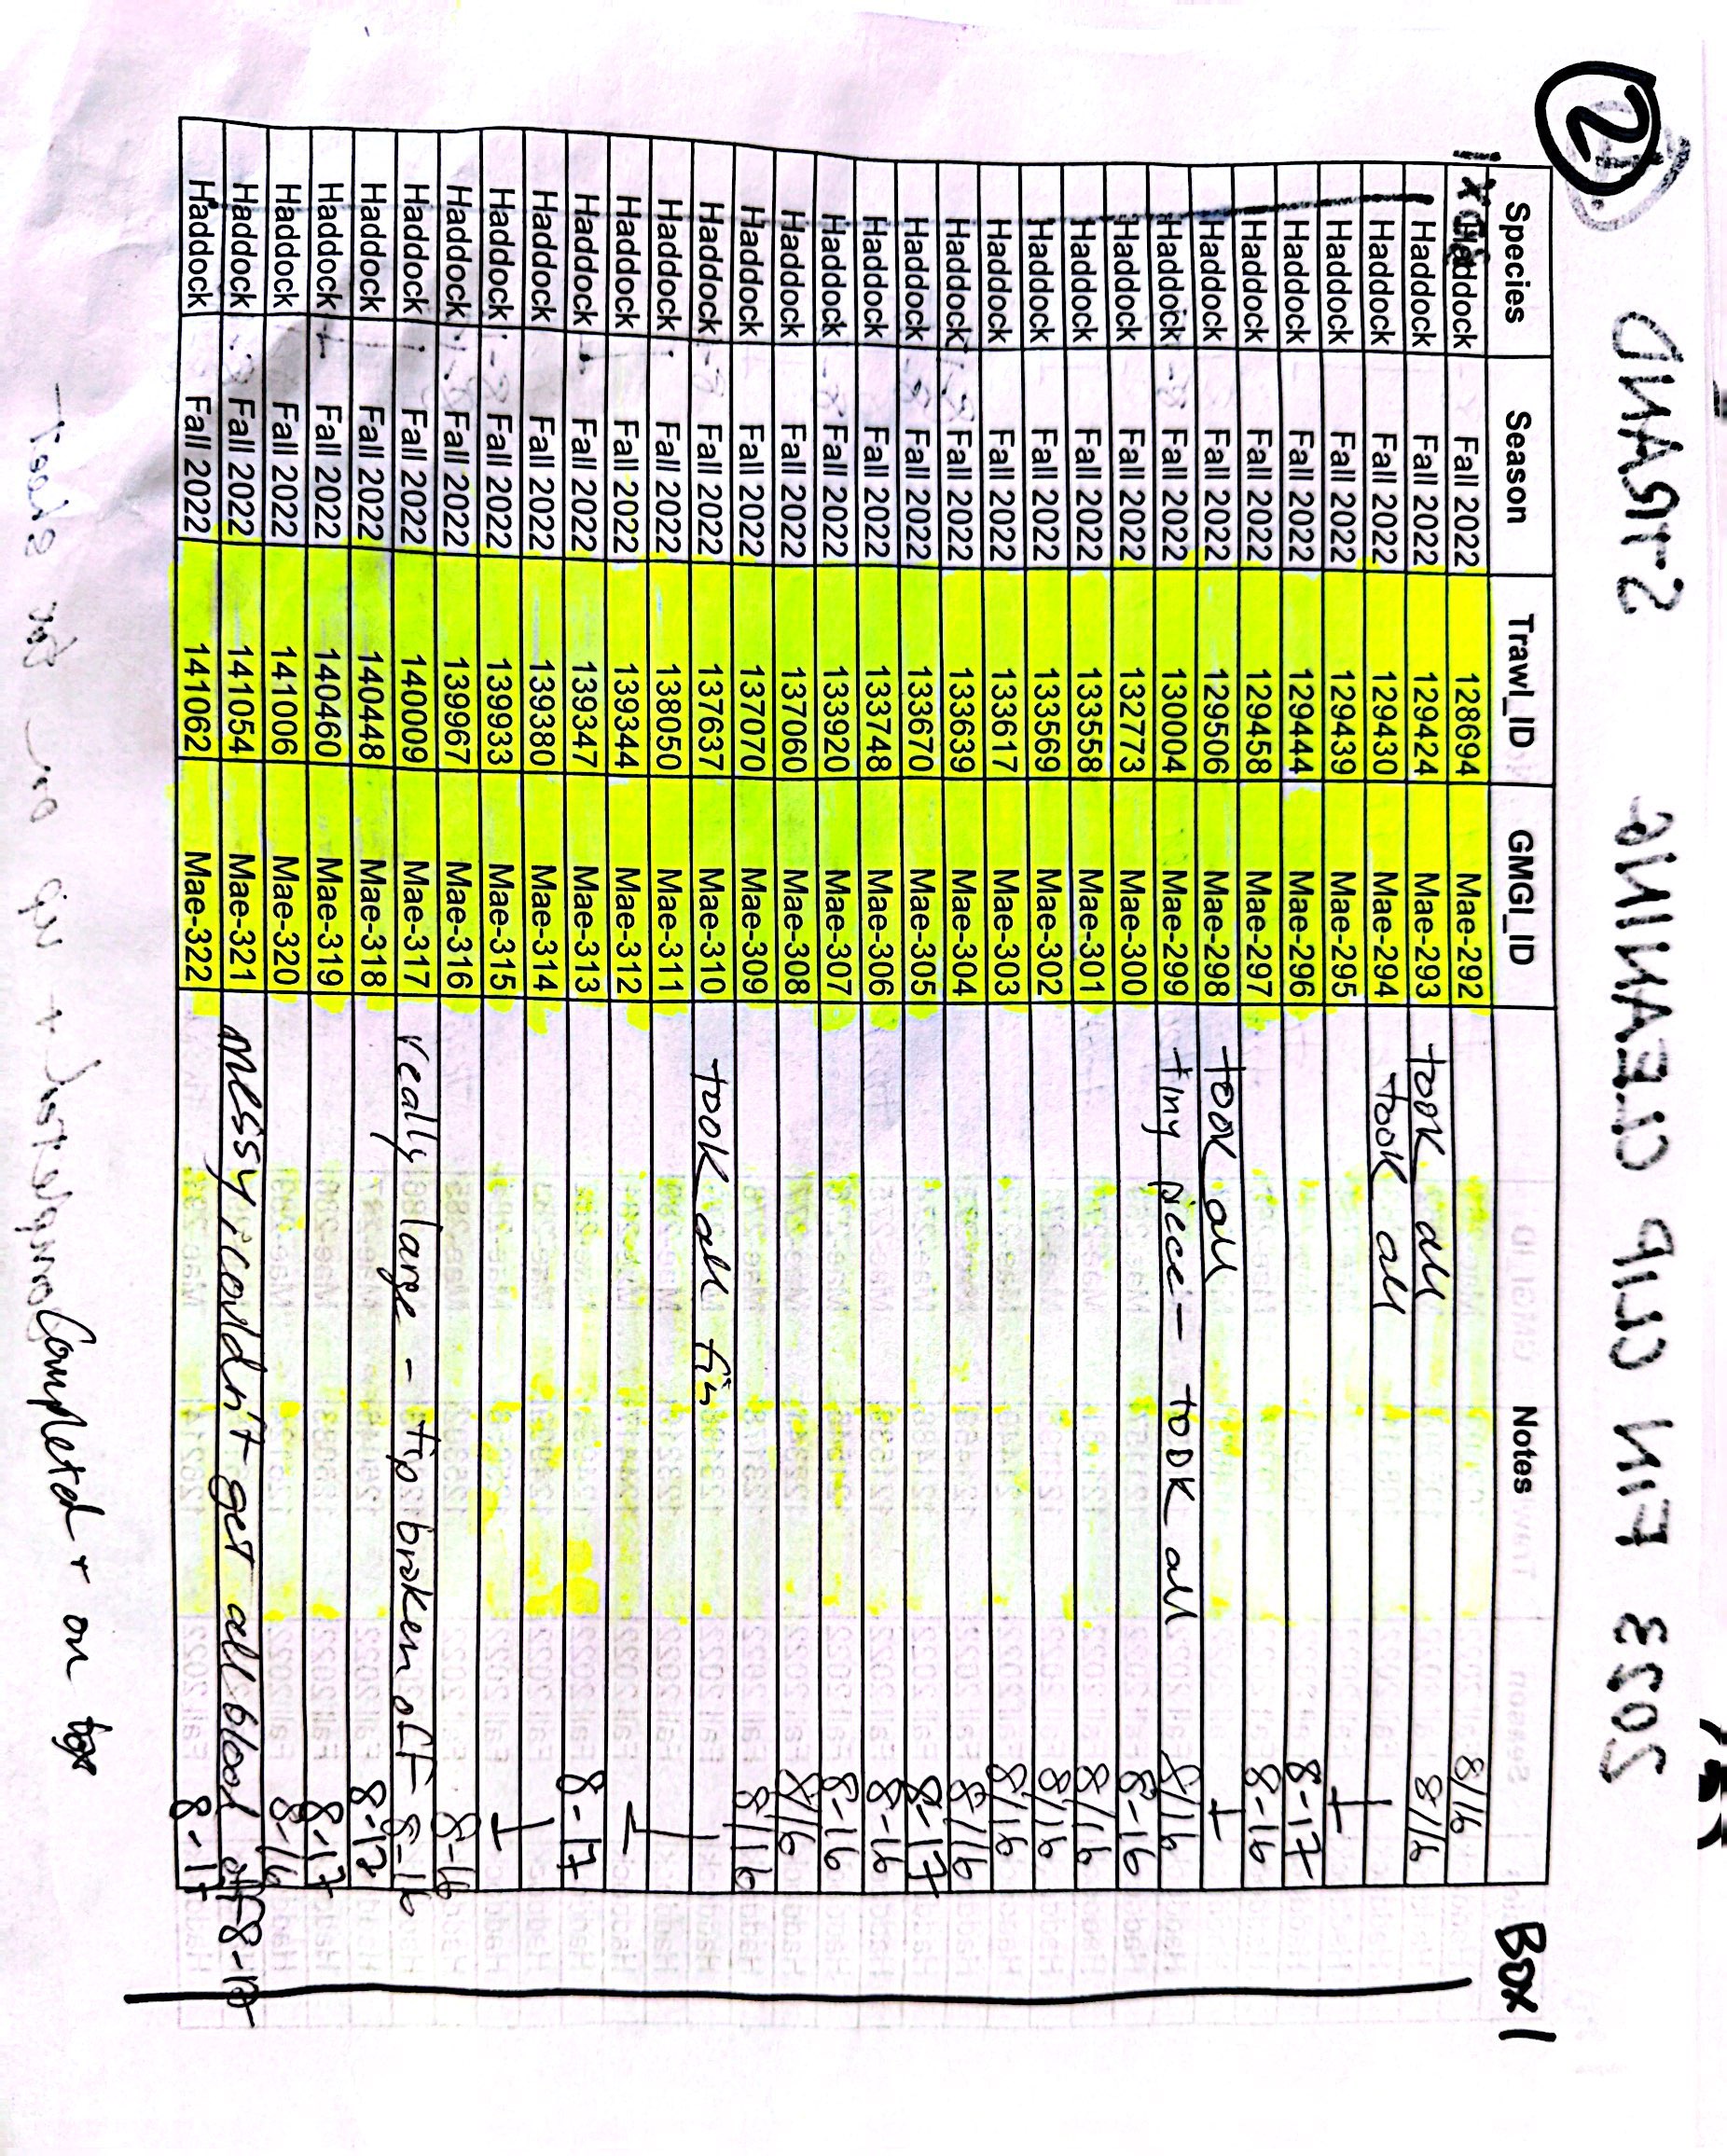 2023 FIN CLIP CLEANING STRAND
2
Species Season Trawl_ID GMGI_ID Notes Box 1
Haddock Fall 2022 128694 Mae-292 8/16
Haddock Fall 2022 129424 Mae-293 took all 8/16
Haddock Fall 2022 129430 Mae-294 took all
Haddock Fall 2022 129439 Mae-295
Haddock Fall 2022 129444 Mae-296 8-17
Haddock Fall 2022 129458 Mae-297 8-16
Haddock Fall 2022 129506 Mae-298 took all
Haddock Fall 2022 130004 Mae-299 tiny piece - took all 8/16
Haddock Fall 2022 132773 Mae-300 8-16
Haddock Fall 2022 133558 Mae-301 8/16
Haddock Fall 2022 133569 Mae-302 8/16
Haddock Fall 2022 133617 Mae-303 8/16
Haddock Fall 2022 133639 Mae-304 8/16
Haddock Fall 2022 133670 Mae-305 8-17
Haddock Fall 2022 133748 Mae-306 8-16
Haddock Fall 2022 133920 Mae-307 8-16
Haddock Fall 2022 137060 Mae-308 8/16
Haddock Fall 2022 137070 Mae-309 8/16
Haddock Fall 2022 137637 Mae-310 took all fin
Haddock Fall 2022 138050 Mae-311
Haddock Fall 2022 139344 Mae-312
Haddock Fall 2022 139347 Mae-313 8-17
Haddock Fall 2022 139380 Mae-314
Haddock Fall 2022 139933 Mae-315
Haddock Fall 2022 139967 Mae-316 8-16
Haddock Fall 2022 140009 Mae-317 really large - tip broken off 8-16
Haddock Fall 2022 140448 Mae-318 8-17
Haddock Fall 2022 140460 Mae-319 8-17
Haddock Fall 2022 141006 Mae-320 8-16
Haddock Fall 2022 141054 Mae-321 messy, couldn't get all blood off
Haddock Fall 2022 141062 Mae-322 8-17
Completed + on box
Completed + up on box sheet